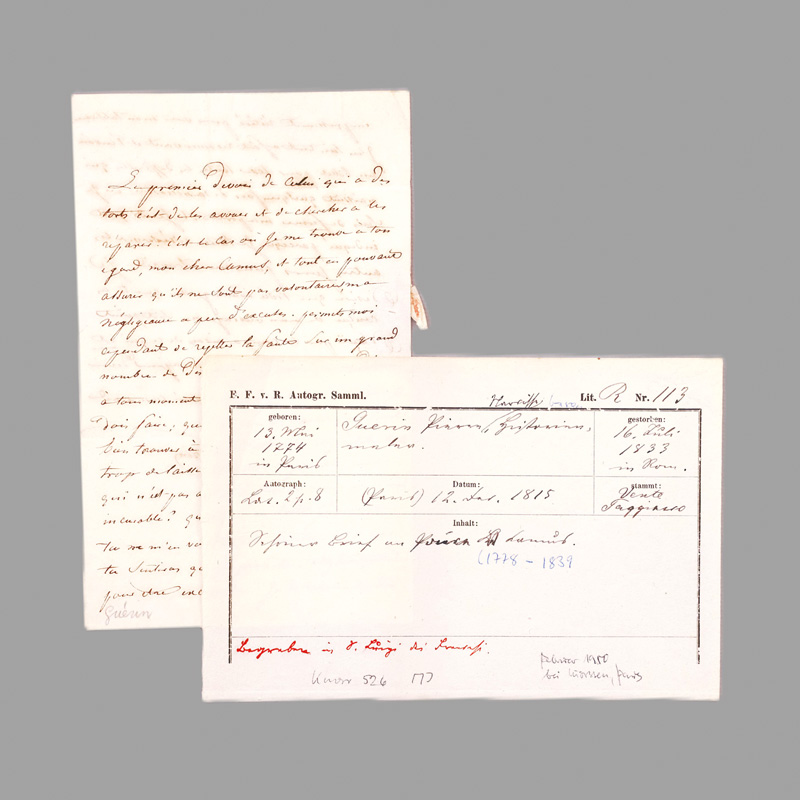 Le premier devoir de celui qui a des
torts c'est de les avouer et de chercher a les
reparer. c'est le cas où Je me trouve a ton
egard, mon cher Camus, et tout en pouvant
assurer qu'ils ne sont pas volontaires, ma
négligeance a peu d'excuses. permets moi
cependant de rejetter la faute sur un grand
nombre de
à tous moment
dois faire; que
l'on trouve à
trop de
qui n'est pas a
incurable? qu
tu ne m'en
tu sentiras qu
pour être
Guérin
F. F. v. R. Autogr. Samml.
Narcisse
Lit. R Nr. 113
geboren:
13. Mai
1774
in Paris
Guerin Pierre, Historien-
maler.
gestorben:
16. Juli
1833
in Rom.
Autograph:
L.a.s. 2 p. 8
Datum:
(Paris) 12. Dec. 1815
stammt:
Vente
Inhalt:
Schöner Brief an Camus.
(1778 - 1839
Begraben in S. Luigi dei Francesi.
526
Februar 1950
bei Paris